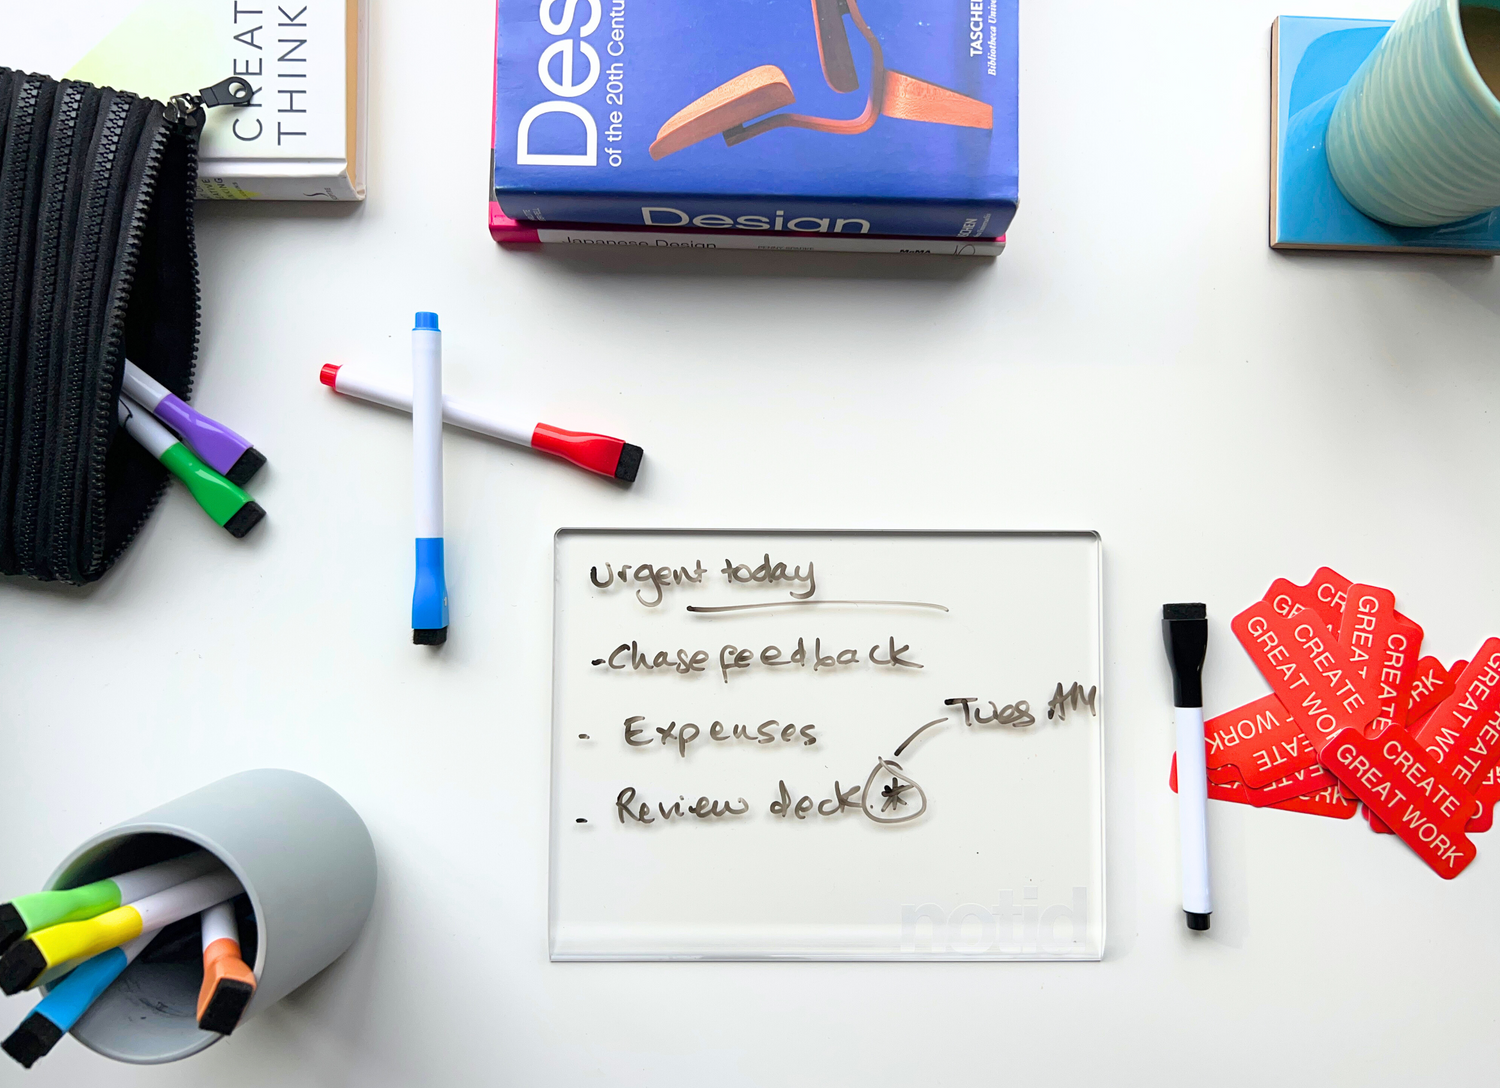 CREAT
THINK
Des
of the 20th Centu
TASCHEN
Bibliotheca Unive
Design
Japanese Design
urgent today
- Chase feedback
- Expenses
Tues AM
- Review deck *
notid
CREATE
GREAT WORK
CREATE
GREAT WORK